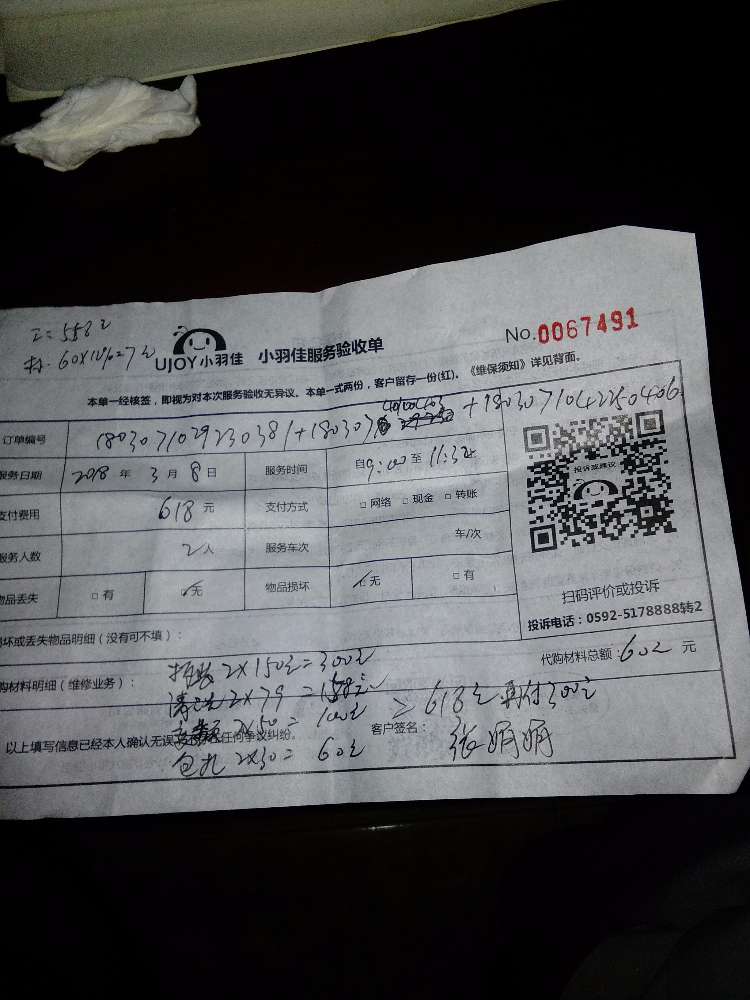 工=558元
材:60×10%=7元
UJOY小羽佳 小羽佳服务验收单
No.0067491
本单一经核签，即视为对本次服务验收无异议。本单一式两份，客户留存一份(红)。《维保须知》详见背面。
订单编号 180307102923038 1+180307 +1803071042250406
服务日期 2018 年 3 月 8 日 服务时间 自9:00至11:32
支付费用 618 元 支付方式 □网络 □现金 □转账
服务人数 2人 服务车次 车/次
物品丢失 □有 □无 物品损坏 □无 □有
投诉或建议
扫码评价或投诉
投诉电话：0592-5178888转2
损坏或丢失物品明细（没有可不填）：
代购材料总额：60元
代购材料明细（维修业务）：
拆装2×150元=300元
清洗2×79=158元
2×50=100元
包扎2×30=60元
=618元 再付300元
以上填写信息已经本人确认无误 任何争议纠纷。
客户签名：张娟娟